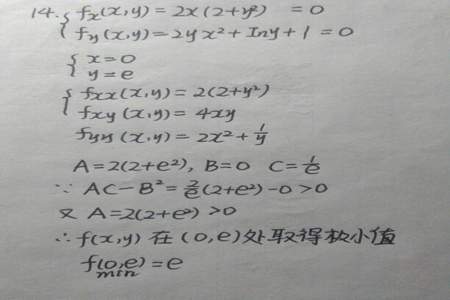 14. { fx(x,y) = 2x(2+y²) = 0
{ fy(x,y) = 2yx²+Iny+1 = 0
{ x=0
{ y=e
{ fxx(x,y) = 2(2+y²)
{ fxy(x,y) = 4xy
fyy(x,y) = 2x²+1/y
A=2(2+e²), B=0 C=1/e
∵ AC-B²=2/e(2+e²)-0>0
又 A=2(2+e²)>0
∴f(x,y)在(0,e)处取得极小值
f(0,e)=e
min